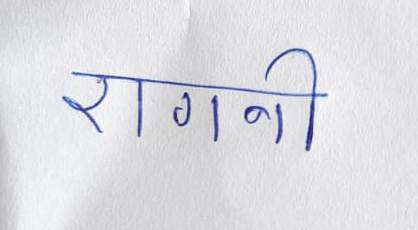 रागनी